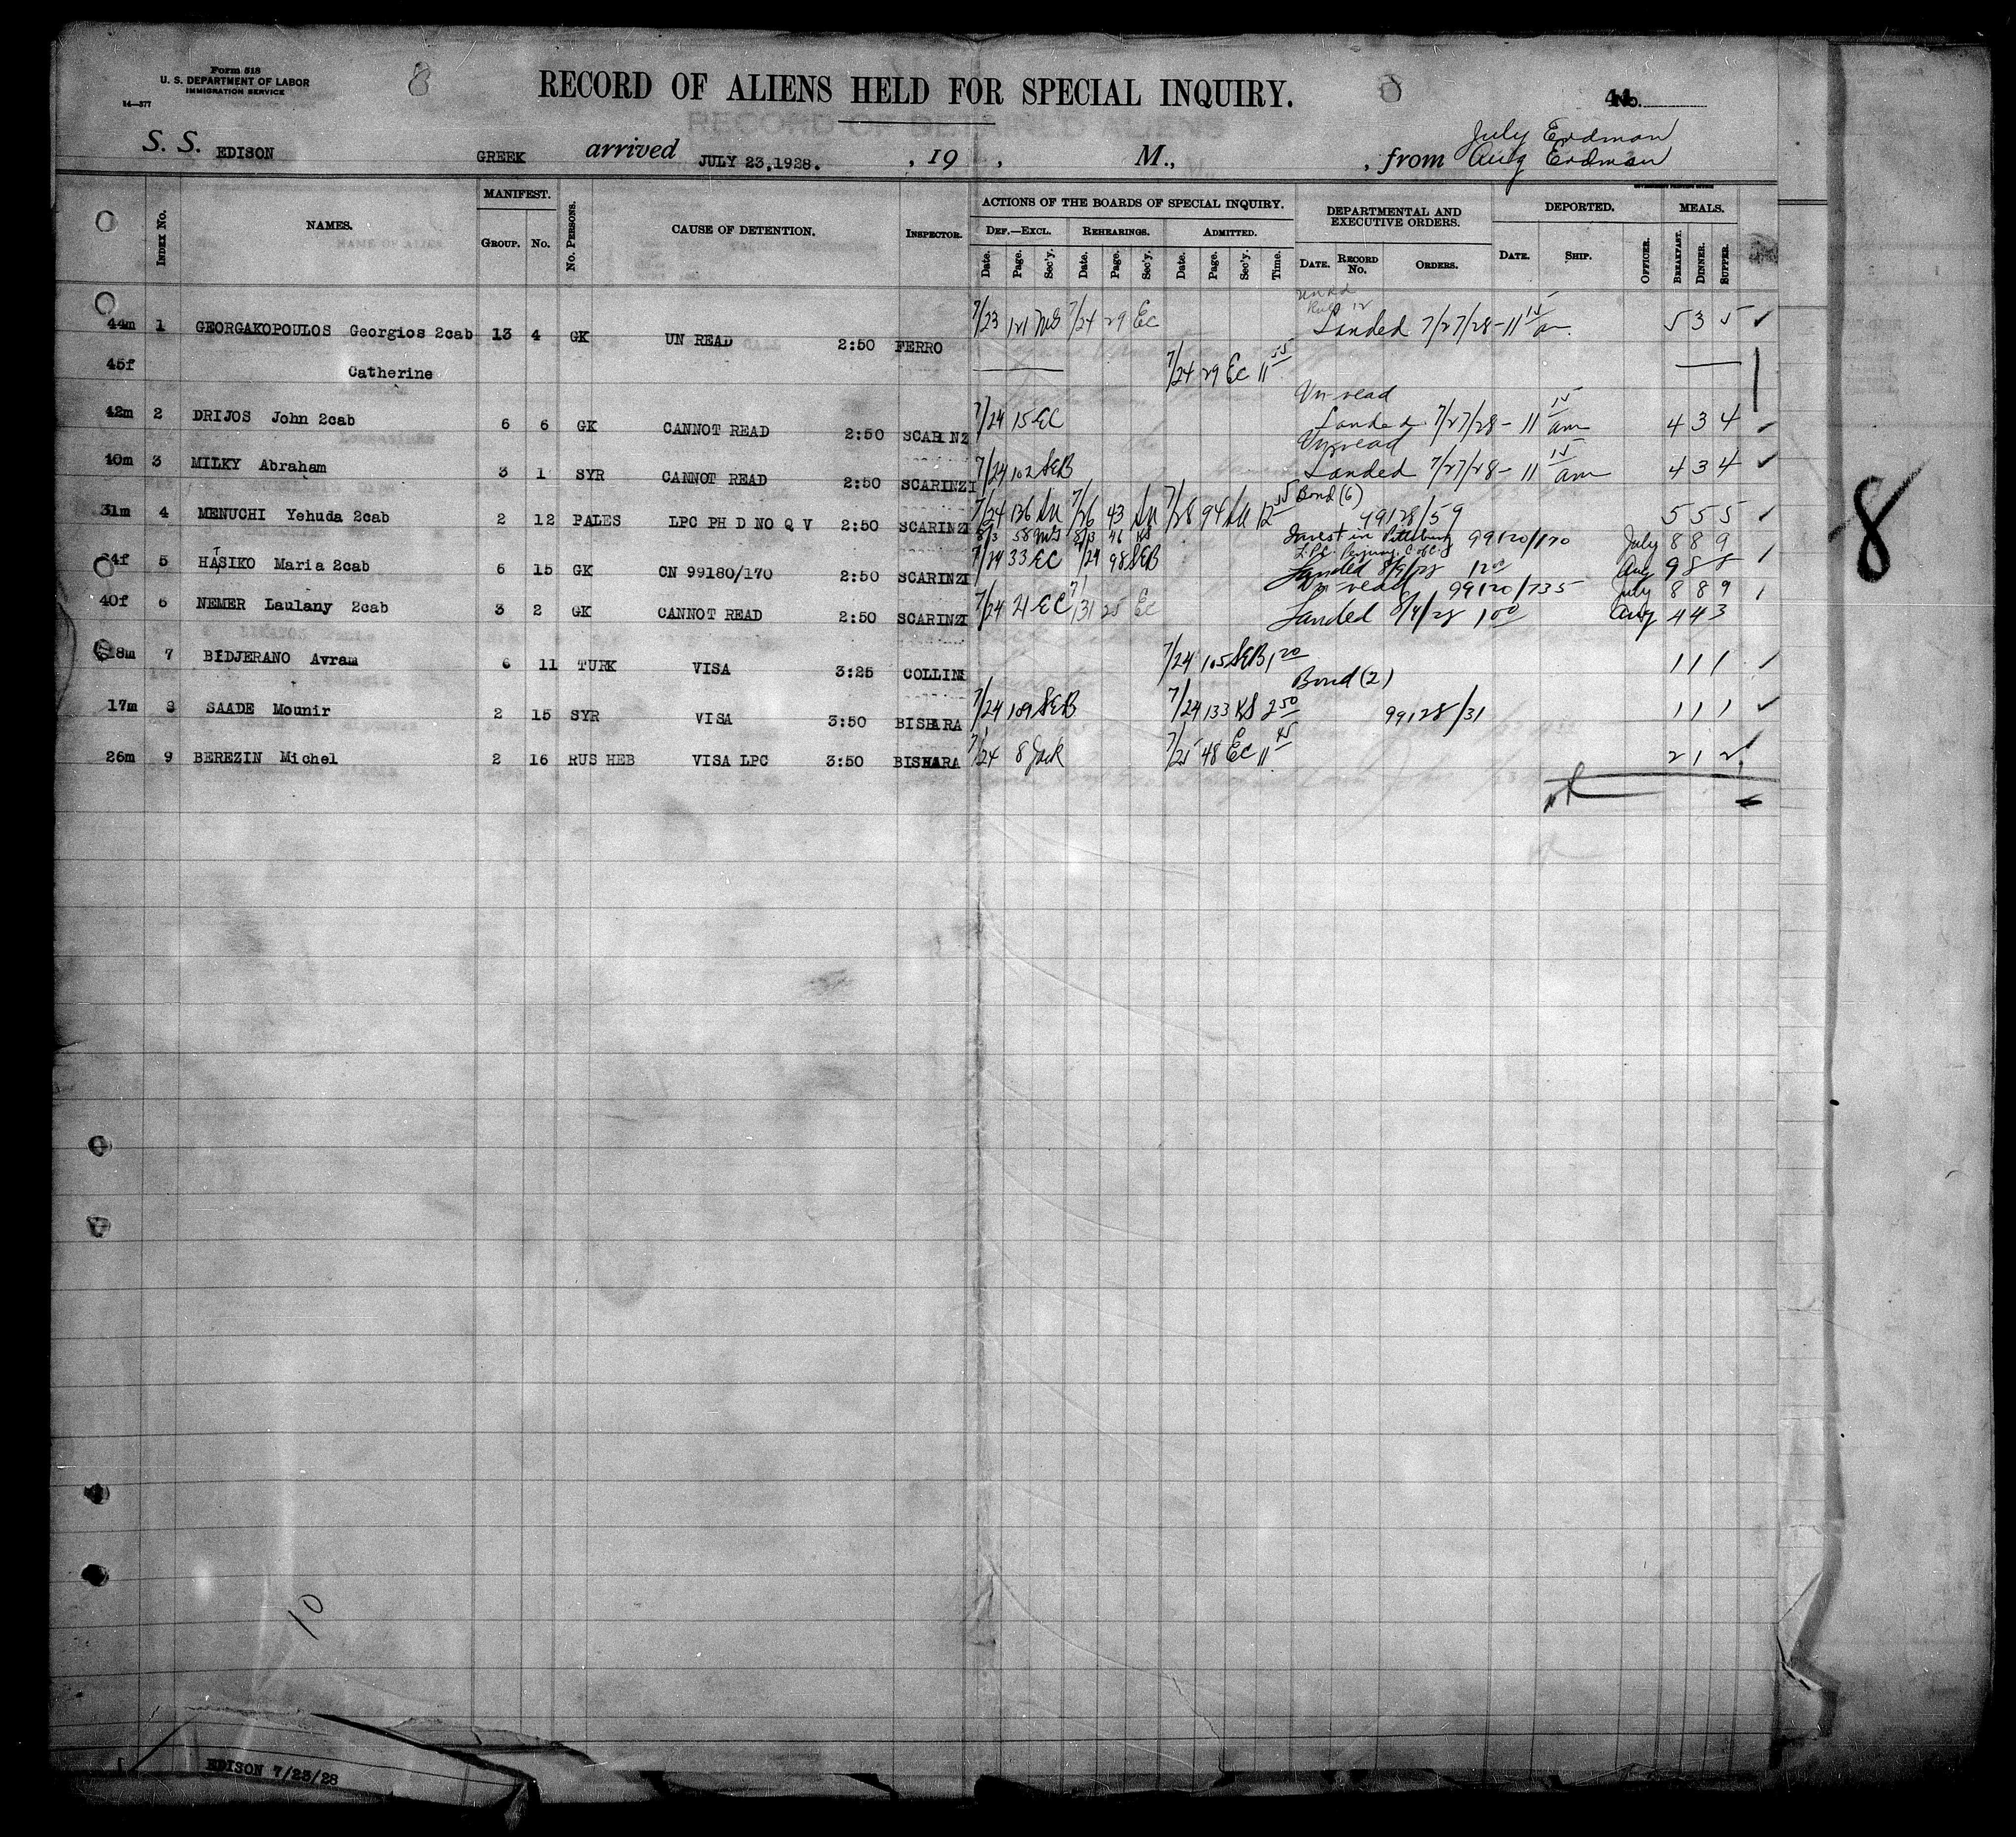 Form 518
U. S. DEPARTMENT OF LABOR
IMMIGRATION SERVICE
14—377
8
RECORD OF ALIENS HELD FOR SPECIAL INQUIRY.
No.
S. S. EDISON GREEK arrived JULY 23,1928. , 19 , M., , from July Erdman
Aug Erdman
INDEX No. NAMES. MANIFEST. GROUP. No. No. PERSONS. CAUSE OF DETENTION. INSPECTOR. ACTIONS OF THE BOARDS OF SPECIAL INQUIRY. DEPARTMENTAL AND EXECUTIVE ORDERS. DEPORTED. MEALS.
DEF.—EXCL. REHEARINGS. ADMITTED.
Date. Page. Sec'y. Date. Page. Sec'y. Date. Page. Sec'y. Time. DATE. RECORD No. ORDERS. DATE. SHIP. OFFICER. BREAKFAST. DINNER. SUPPER.
44m 1 GEORGAKOPOULOS Georgios 2cab 13 4 GK UN READ 2:50 FERRO 7/23 121 MS 7/24 29 EC Landed 7/27/28 - 11 15 am 5 3 5
45f Catherine 7/24 29 EC 11 55
Un-read
42m 2 DRIJOS John 2cab 6 6 GK CANNOT READ 2:50 SCARINZ 7/24 15 EC Landed 7/27/28 - 11 15 am 4 3 4
Un-read
40m 3 MILKY Abraham 3 1 SYR CANNOT READ 2:50 SCARINZI 7/24 102 SEB Landed 7/27/28 - 11 15 am 4 3 4
Bond (6)
31m 4 MENUCHI Yehuda 2cab 2 12 PALES LPC PH D NO Q V 2:50 SCARINZI 7/24 136 7/26 43 7/28 94 12 15 99128/59 5 5 5
8/3 58 MS 8/3 46 KS 99120/170 July 8 8 9
34f 5 HASIKO Maria 2cab 6 15 GK CN 99180/170 2:50 SCARINZI 7/24 33 EC 7/24 98 SEB Landed 8/9/28 12 00 Aug 9 8 8
Un-read 99120/735 July 8 8 9
40f 6 NEMER Laulany 2cab 3 2 GK CANNOT READ 2:50 SCARINZI 7/24 21 EC 7/31 25 EC Landed 8/4/28 1 00 Aug 4 4 3
28m 7 BIDJERANO Avram 6 11 TURK VISA 3:25 COLLINS 7/24 105 SEB 1 20 1 1 1
Bond (2)
17m 8 SAADE Mounir 2 15 SYR VISA 3:50 BISHARA 7/24 109 SEB 7/24 133 KS 2 50 99128/31 1 1 1
26m 9 BEREZIN Michel 2 16 RUS HEB VISA LPC 3:50 BISHARA 7/24 8 Jack 7/25 48 EC 11 45 2 1 2
8
10
EDISON 7/23/28